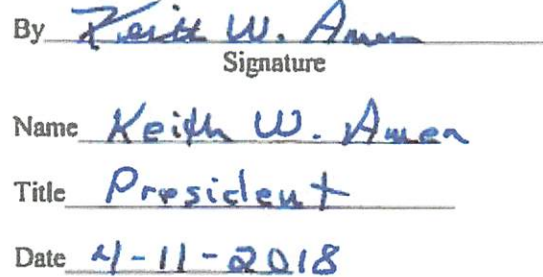 By Keith W. Amen
Signature
Name Keith W. Amen
Title President
Date 4-11-2018